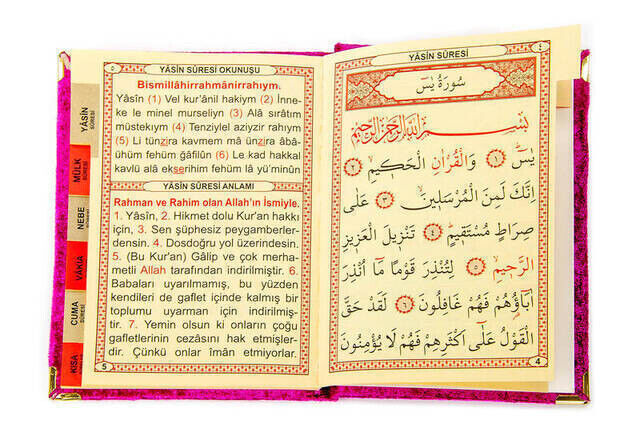 YÂSİN SÛRESİ
٤
سُورَةُ يٰسٓ
بِسْمِ اللّٰهِ الرَّحْمٰنِ الرَّحِيمِ
يٰسٓ ﴿١﴾ وَالْقُرْاٰنِ الْحَكِيمِ ﴿٢﴾
اِنَّكَ لَمِنَ الْمُرْسَلِينَ ﴿٣﴾ عَلٰى
صِرَاطٍ مُسْتَقِيمٍ ﴿٤﴾ تَنْزِيلَ الْعَزِيزِ
الرَّحِيمِ ﴿٥﴾ لِتُنْذِرَ قَوْمًا مَٓا اُنْذِرَ
اٰبَٓاؤُهُمْ فَهُمْ غَافِلُونَ ﴿٦﴾ لَقَدْ حَقَّ
الْقَوْلُ عَلٰٓى اَكْثَرِهِمْ فَهُمْ لَا يُؤْمِنُونَ
4
٥
YÂSİN SÛRESİ OKUNUŞU
Bismillâhirrahmânirrahıym.
Yâsîn (1) Vel kur'ânil hakiym (2) İnne-
ke le minel murseliyn (3) Alâ sırâtım
müstekıym (4) Tenziylel aziyzir rahıym
(5) Li tünzira kavmem mâ ünzira âbâ-
ühüm fehüm ğâfilûn (6) Le kad hakkal
kavlü alâ ekserihim fehüm lâ yü'minûn
YÂSİN SÛRESİ ANLAMI
Rahman ve Rahim olan Allah'ın İsmiyle.
1. Yâsîn, 2. Hikmet dolu Kur'an hakkı
için, 3. Sen şüphesiz peygamberler-
densin. 4. Dosdoğru yol üzerindesin.
5. (Bu Kur'an) Gâlip ve çok merha-
metli Allah tarafından indirilmiştir. 6.
Babaları uyarılmamış, bu yüzden
kendileri de gaflet içinde kalmış bir
toplumu uyarman için indirilmiş-
tir. 7. Yemin olsun ki onların çoğu
gafletlerinin cezasını hak etmişler-
dir. Çünkü onlar îmân etmiyorlar.
5
YÂSİN
SÛRESİ
MÜLK
SÛRESİ
NEBE
SÛRESİ
VAKIA
SÛRESİ
CUMA
SÛRESİ
KISA